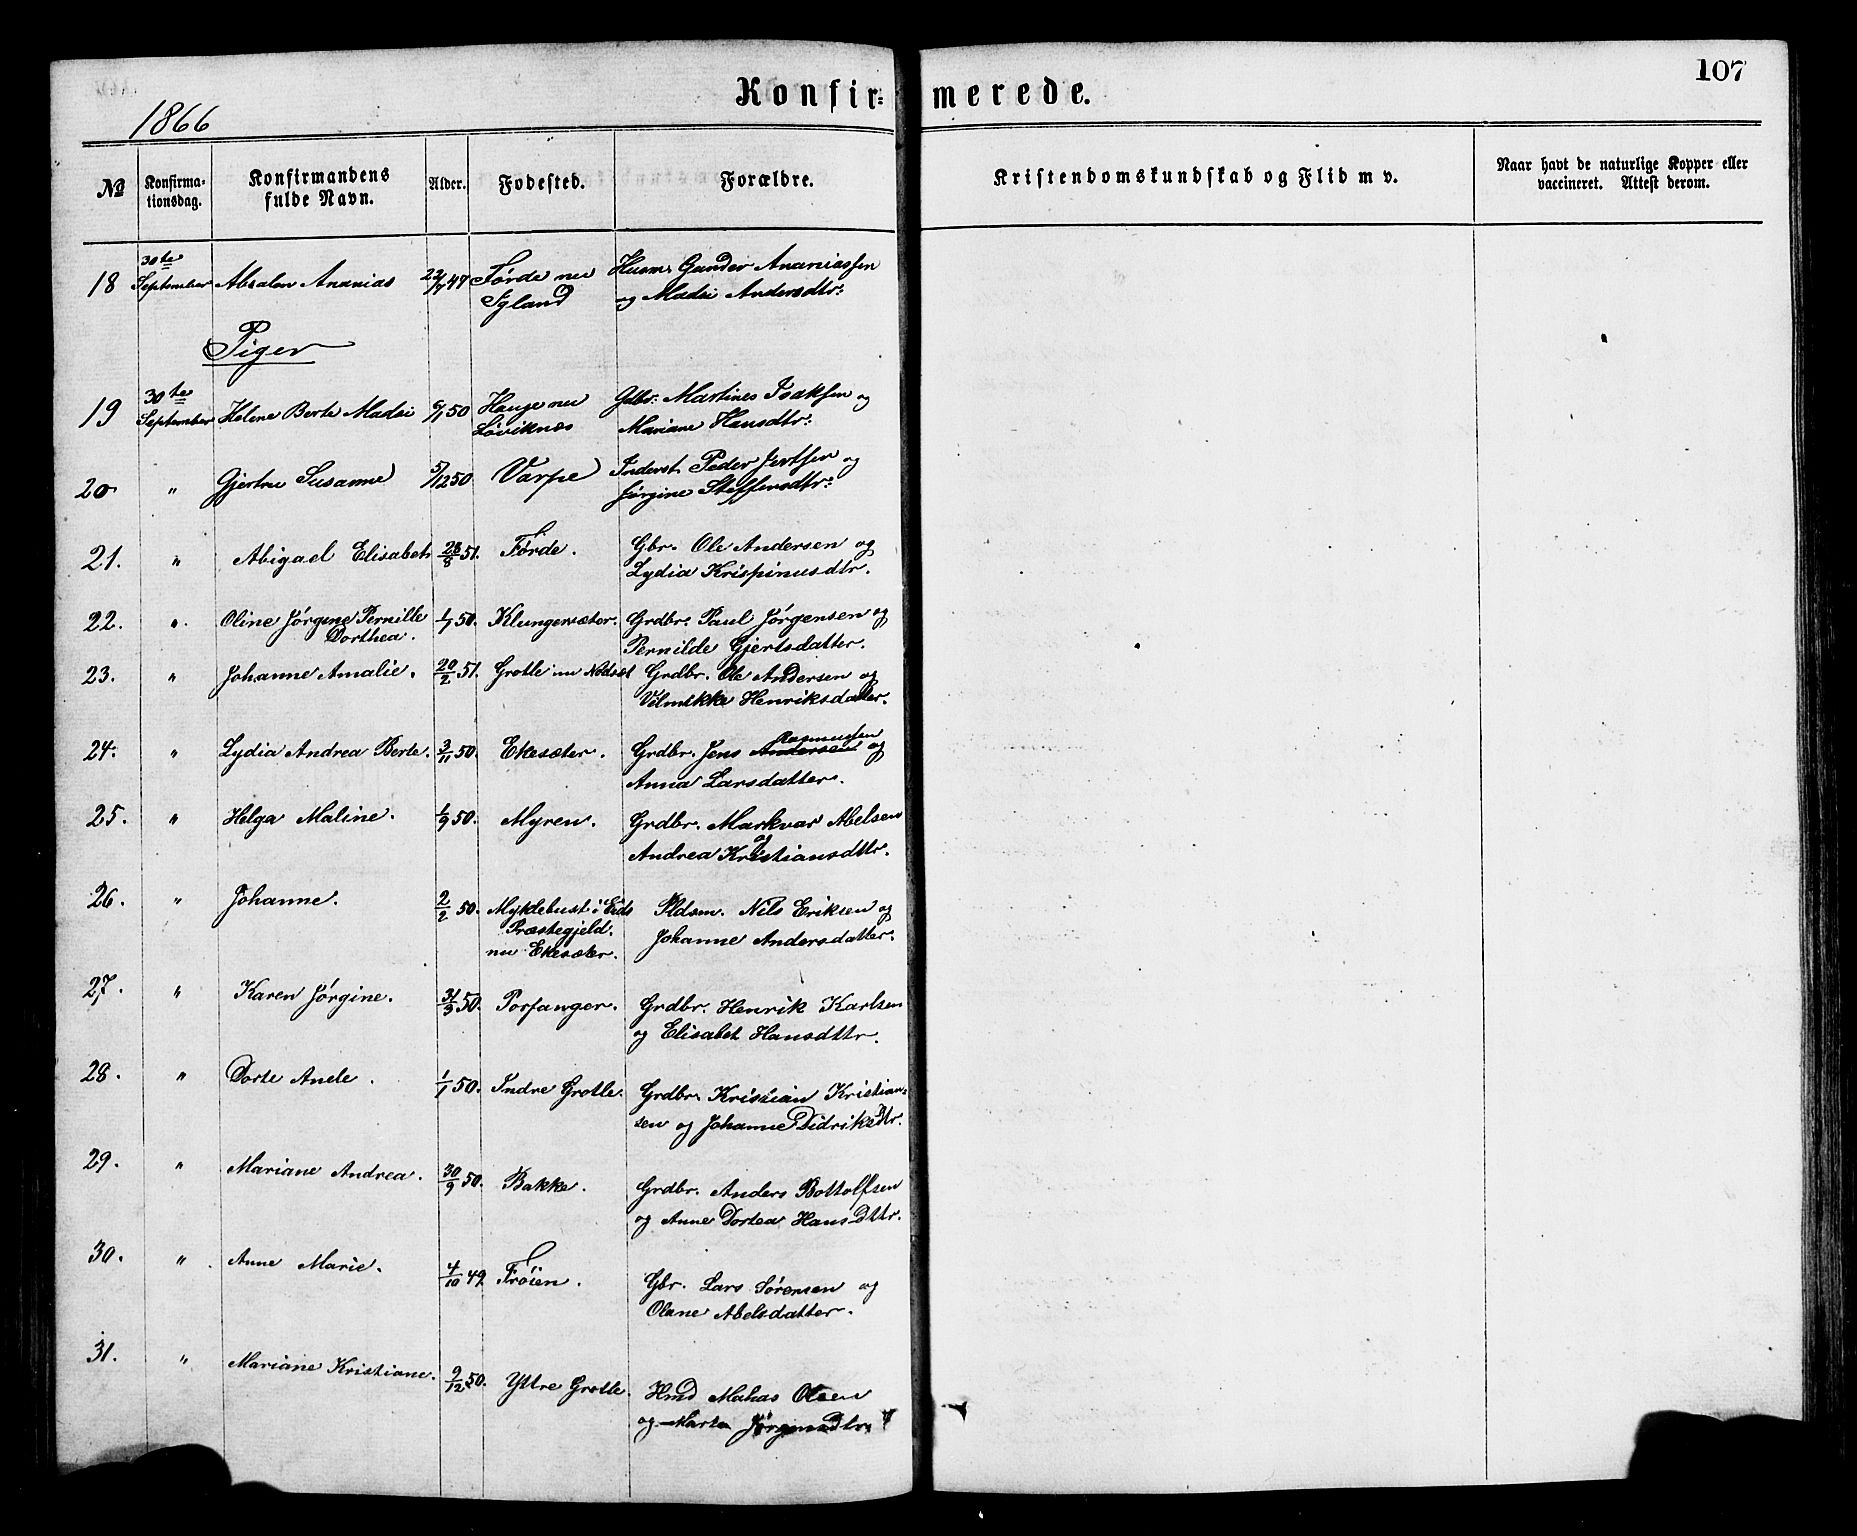 107
Konfir= merede.
1866
№ Konfirma- Konfirmandens Alder. Fødested. Forældre. Kristendomskundskab og Flid m v. Naar havt de naturlige Kopper eller
tionsdag. fulde Navn. vaccineret. Attest derom.
30te
18 September Absalon Ananias 22/7 47 Førde nu Husm. Gunder Ananiassen
Igland og Madsi Andersdtr:
Piger
30te
19 September Helene Berte Madsi 6/1 50 Hauge nu Gdbr. Martines Isaksen og
Løviknæs Mariane Hansdtr:
20 " Gjertru Susanne 5/12 50 Varpe Inderst. Peder Jertsen og
Jørgine Steffensdtr:
21. " Abigael Elisabeth 28/8 51. Førde. Gbr. Ole Andersen og
Lydia Krispinusdtr.
22. " Oline Jørgine Pernille 1/7 50. Klungersæter. Grdbr. Paul Jørgensen og
Dorthea. Pernilde Gjertsdatter.
23. " Johanne Amalie. 20/2 51. Grotle nu Nodset Grdbr. Ole Andersen og
Velmekke Henriksdatter.
24. " Lydia Andrea Berte. 3/11 50. Ekesæter. Grdbr. Jens Andersen Rasmussen og
Anna Larsdatter.
25. " Helga Maline. 1/9 50. Myren. Grdbr. Markvar Abelsen
og Andrea Kristiansdttr.
26. " Johanne. 2/2 50. Myklebust i Eids Pldsm. Nils Eriksen og
Præstegjeld. Johanne Andersdatter.
nu Ekesæter.
27. " Karen Jørgine. 31/3 50. Porfanger. Grdbr. Henrik Karlsen
og Elisabet Hansdttr.
28. " Dorte Anele. 1/1 50. Indre Grotle. Grdbr. Kristian Kristian-
sen og Johanne Didriksdtr.
29. " Mariane Andrea. 30/9 50. Bakke. Grdbr. Anders Bottolfsen
og Anne Dortea Hans Dttr.
30. " Anne Marie. 4/10 49 Frøien. Gbr. Lars Sørensen og
Olane Abelsdatter.
31. " Mariane Kristiane. 9/12 50. Yttre Grotle. Hmd Mahas Olsen
og Marta Jørgensdtr.